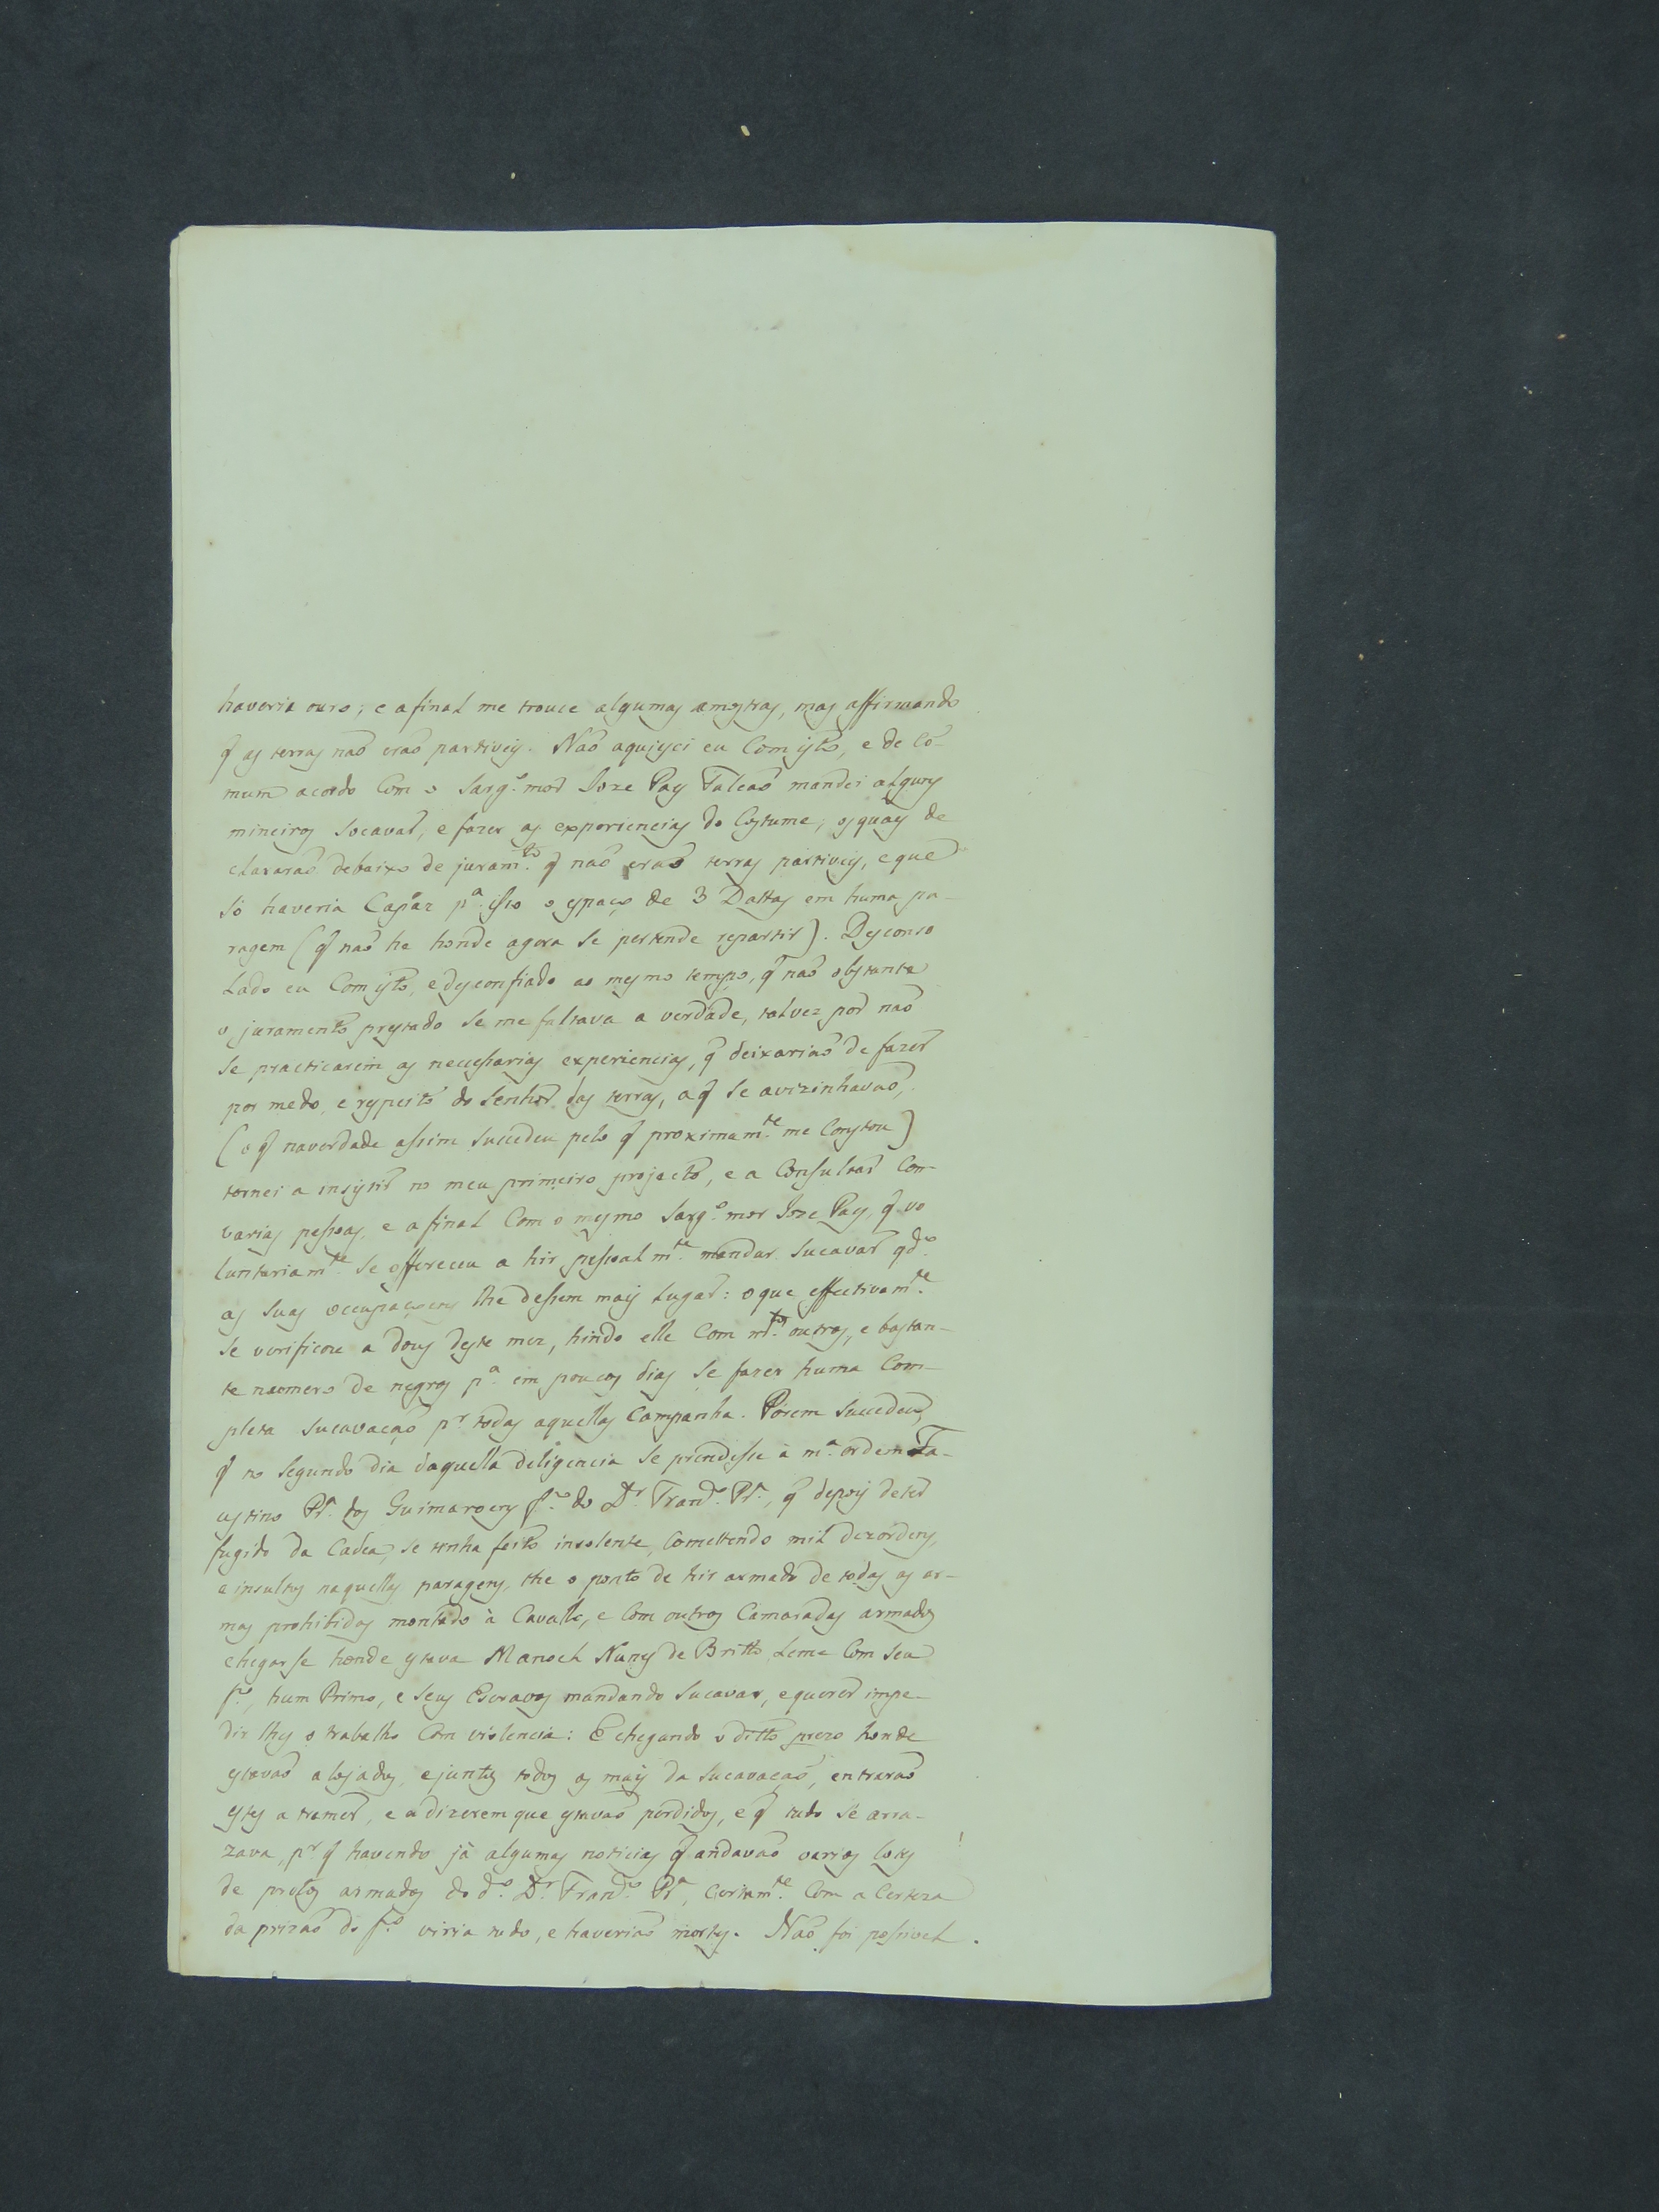 haveria ouro; e afinal me trouce algumas amostras, mas affirmando
q̃ as terras naõ eraõ partiveis. Naõ aquiesci eu Com isto, e de Co-
mum acordo Com o Sarg.º mor Joze Pays Falcaõ mandei alguns
mineiros Socavar, e fazer as experiencias do Costume; os quays de
clararaõ debaixo de juram.to q̃ naõ eraõ terras partiveis, e que
só haveria Capaz p.ª isso o espaço de 3 Dattas em huma pa-
ragem (q̃ naõ he honde agora se pertende repartir). Desconso
lado eu Com isto, e desconfiado ao mesmo tempo, q̃ naõ obstante
o juramento prestado se me faltava a verdade, talvez por naõ
se practicarem as necessarias experiencias, q̃ deixariaõ de fazer
por medo, e respeito do Senhor das terras, a q̃ se avizinhavaõ,
(o q̃ naverdade assim succedeu pelo q̃ proximam.te me Constou)
tornei a insistir no meu primeiro projecto, e a Consultar Com
varias pessoas, e afinal Com o mesmo Sarg.º mor Joze Pays, q̃ vo
luntariam.te se offereceu a hir pessoalm.te mandar Sucavar qd.º
as suas occupaçoens lhe dessem mais lugar: o que effectivam.te
se verificou a dous deste mez, hindo elle Com m.tos outros, e bastan-
te numero de negros p.ª em poucos dias se fazer huma Com-
pleta Sucavaçaõ p.r todas aquellas Campanha. Porem succedeu,
q̃ no segundo dia daquella deligencia se prendesse à m.ª ordem Fa-
ustino Pr.ª dos Guimaroens f.º do D.r Fran.co Pr.ª, q̃ depois de ter
fugido da Cadea, se tinha feito insolente, Comettendo mil dezordens,
e insultos naquellas paragens, the o ponto de hir armado de todas as ar-
mas prohibidas montado à Cavallo, e Com outros Camaradas armados
chegarse honde estava Manoel Nunes de Britto Leme Com seu
f.º, hum Primo, e seus Escravos mandando Sucavar, e querer impe-
dir lhes o trabalho Com violencia: E chegando o ditto prezo honde
estavaõ alojados, e juntos todos os mais da Sucavaçaõ, entraraõ
estes a tremer, e a dizerem que estavaõ perdidos, e q̃ tudo se arra-
zava, p.r q̃ havendo jà algumas noticias q̃ andavaõ varios lotes
de pretos armados do d.º D.r Fran.co Pr.ª, certam.te Com a Certeza
da prizaõ do f.º viria tudo, e haveriaõ mortes. Naõ foi possivel